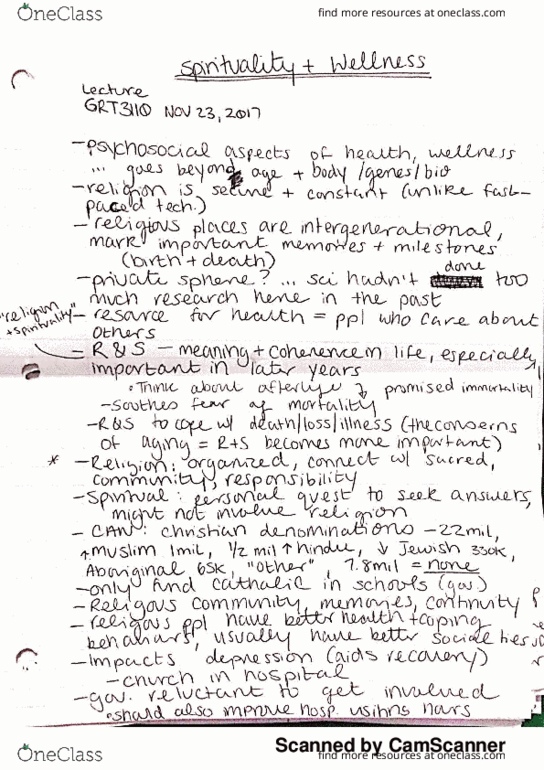 OneClass
find more resources at oneclass.com
spirituality + Wellness
Lecture
GRT3110 NOV 23, 2017
-psychosocial aspects of health, wellness
... goes beyond age + body/genes/bio
-religion is secure + constant (unlike fast-
paced tech.)
-religious places are intergenerational,
mark important memories + milestones
(birth + death)
-private sphere? ... sci hadn't done too
much research here in the past
"religion
+ spirituality"
- resource for health = ppl who care about
others
- R & S - meaning + coherence in life, especially
important in later years
• Think about afterlife promised immortality
-soothes fear of mortality
-R&S to cope w/ death/loss/illness (the conserns
of aging = R+S becomes more important)
* -Religion: organized, connect w/ sacred,
community, responsibility
-Spiritual: personal quest to seek answers,
might not involve religion
- CAN: christian denominations -22mil,
↑muslim 1mil, 1/2 mil ↑ hindu, ↓ Jewish 330K,
Aboriginal 65K, "other", 7.8mil = none
-only fund catholic in schools (gov)
- Religous community, memories, continuity
- religous ppl have better health + coping
behaviars, usually have better social ties
-Impacts depression (aids recovery)
-church in hospital
-gov. reluctant to get involved
•should also improve hosp. hours
Scanned by CamScanner
OneClass
find more resources at oneclass.com